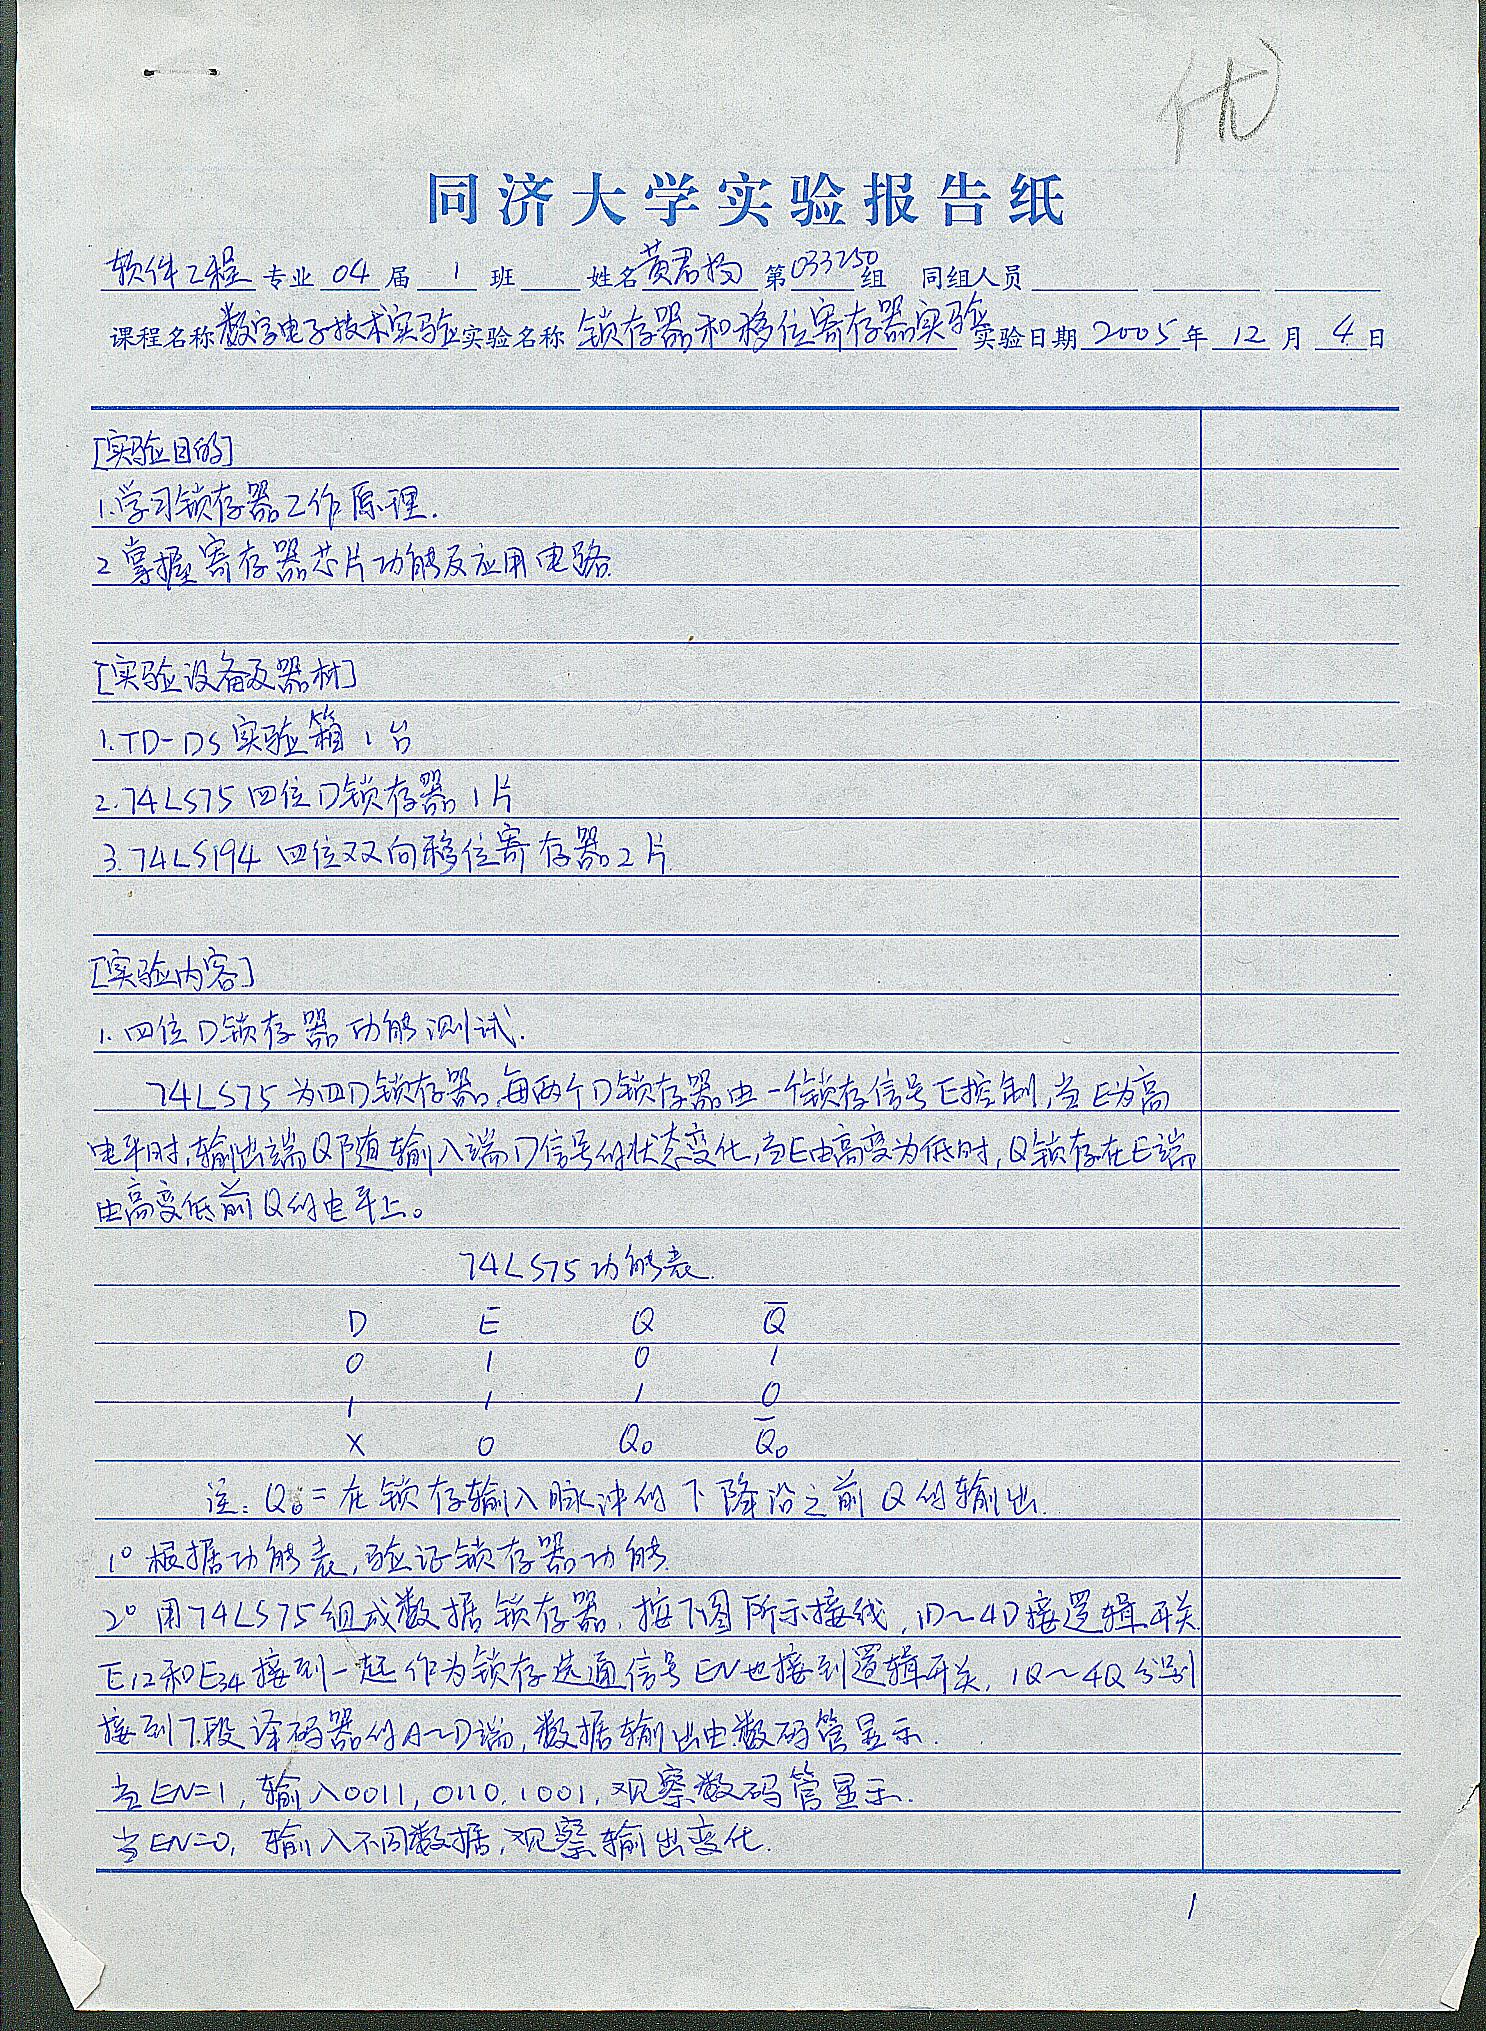 优
同济大学实验报告纸
软件工程 专业 04 届 1 班 姓名 黄君 第 033250 组 同组人员
课程名称 数字电子技术实验 实验名称 锁存器和移位寄存器实验 实验日期 2005 年 12 月 4 日
[实验目的]
1.学习锁存器工作原理.
2.掌握寄存器芯片功能及应用电路.
[实验设备及器材]
1.TD-DS实验箱1台
2.74LS75四位D锁存器1片
3.74LS194四位双向移位寄存器2片
[实验内容]
1.四位D锁存器功能测试.
74LS75为四D锁存器,每两个D锁存器由一个锁存信号E控制,当E为高
电平时,输出端Q随输入端D信号的状态变化,当E由高变为低时,Q锁存在E端
由高变低前Q的电平上。
74LS75功能表.
D E Q Q̅
0 1 0 1
1 1 1 0
X 0 Q₀ Q̅₀
注:Q₀=在锁存输入脉冲的下降沿之前Q的输出.
1°根据功能表,验证锁存器功能.
2°用74LS75组成数据锁存器,按下图所示接线,1D~4D接逻辑开关.
E12和E34接到一起作为锁存选通信号EN也接到逻辑开关,1Q~4Q分别
接到7段译码器的A~D端,数据输出由数码管显示.
当EN=1,输入0011,0110,1001,观察数码管显示.
当EN=0,输入不同数据,观察输出变化.
1